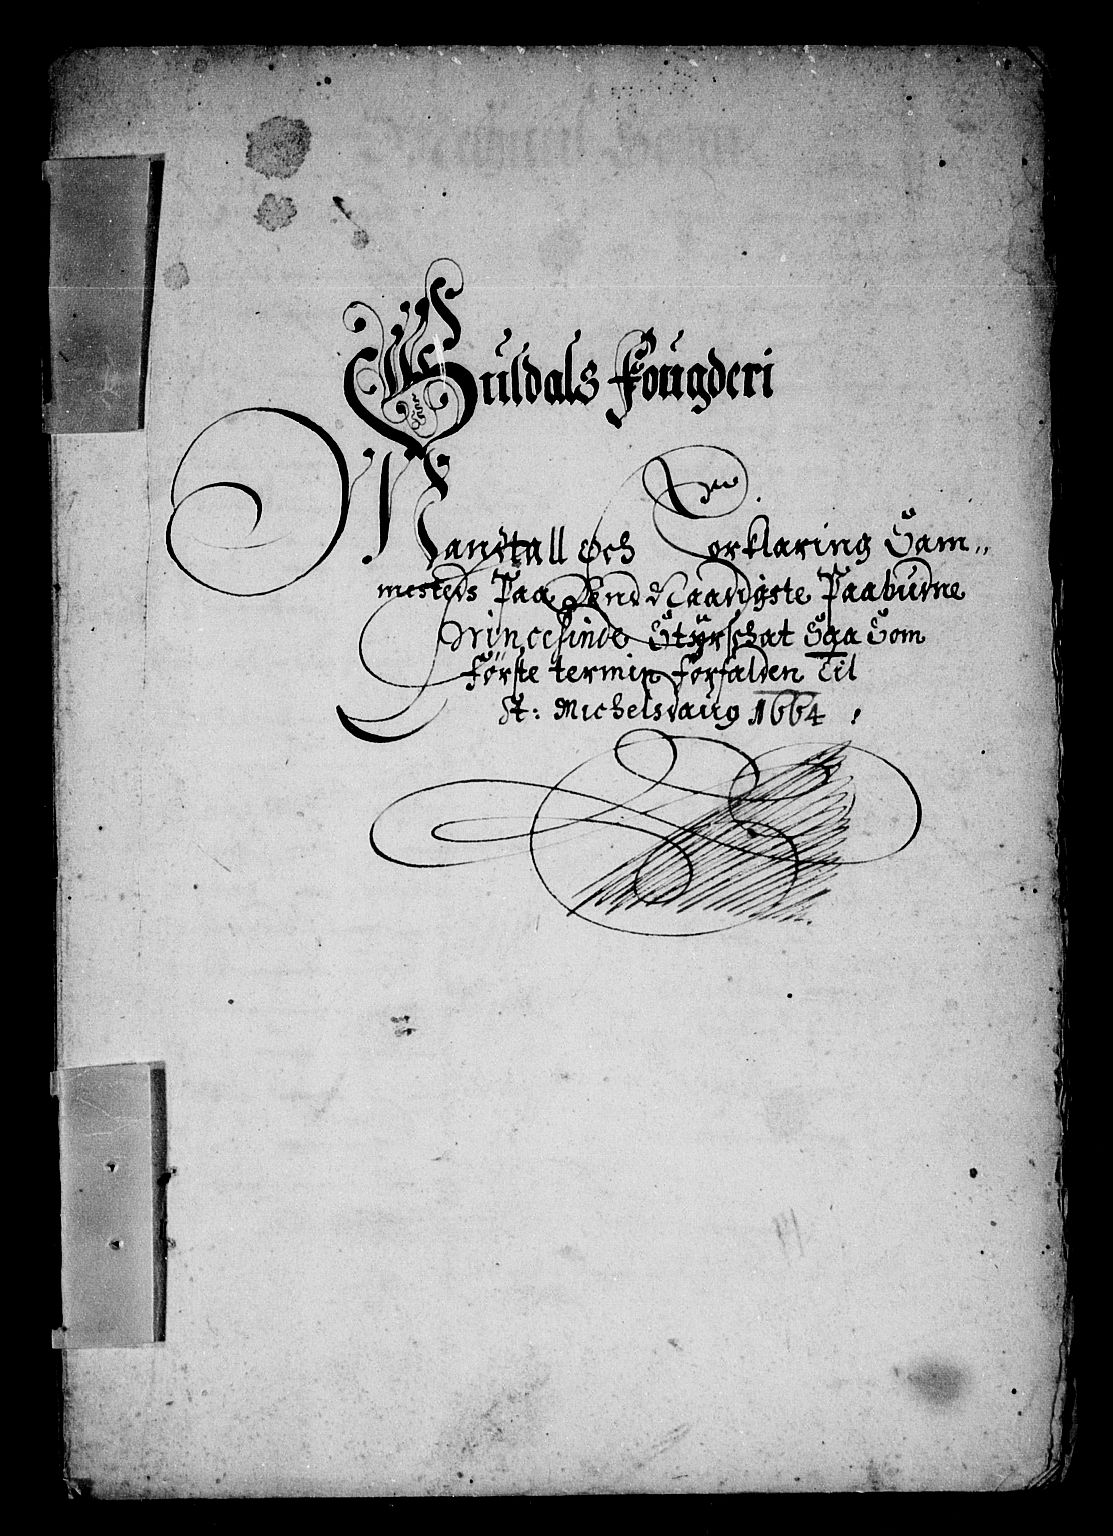 Guldals Fougderi
Mandtall och Forklaring Sam„
mesteds Paa dend Naadigste Paabudne
Princesinde Styrschat Saa Som
förste termin forfalden Til
St: Michelsdaug 1664
14